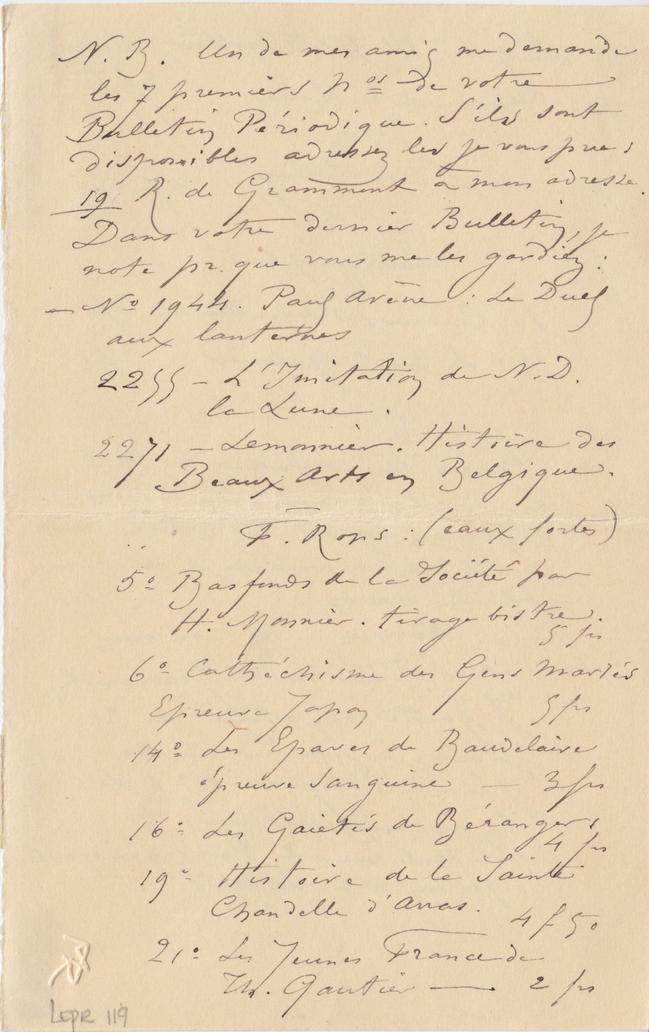 N. B. Un de mes amis me demande
les 7 premiers nos de votre
Bulletin Périodique. S'ils sont
disponibles adressez les je vous prie :
19 R. de Grammont à mon adresse.
Dans votre dernier Bulletin, je
note pr. que vous me les gardiez :
— No 1944. Paul Arène : Le Duel
aux lanternes
2255 — L'Imitation de N. D.
la Lune.
2271 — Lemonnier. Histoire des
Beaux Arts en Belgique.
F. Rops : (eaux fortes)
5o Basfonds de la Société par
H. Monnier. tirage bistre.
5 frs
6o Cathéchisme des Gens Mariés
Epreuve Japon 5 frs
14o Les Epaves de Baudelaire
épreuve sanguine — 3 frs
16o Les Gaietés de Béranger,
4 frs
19o Histoire de la Sainte
Chandelle d'Arras. 4 f 50
21o Les Jeunes France de
Th. Gautier — 2 frs
Lepr 119